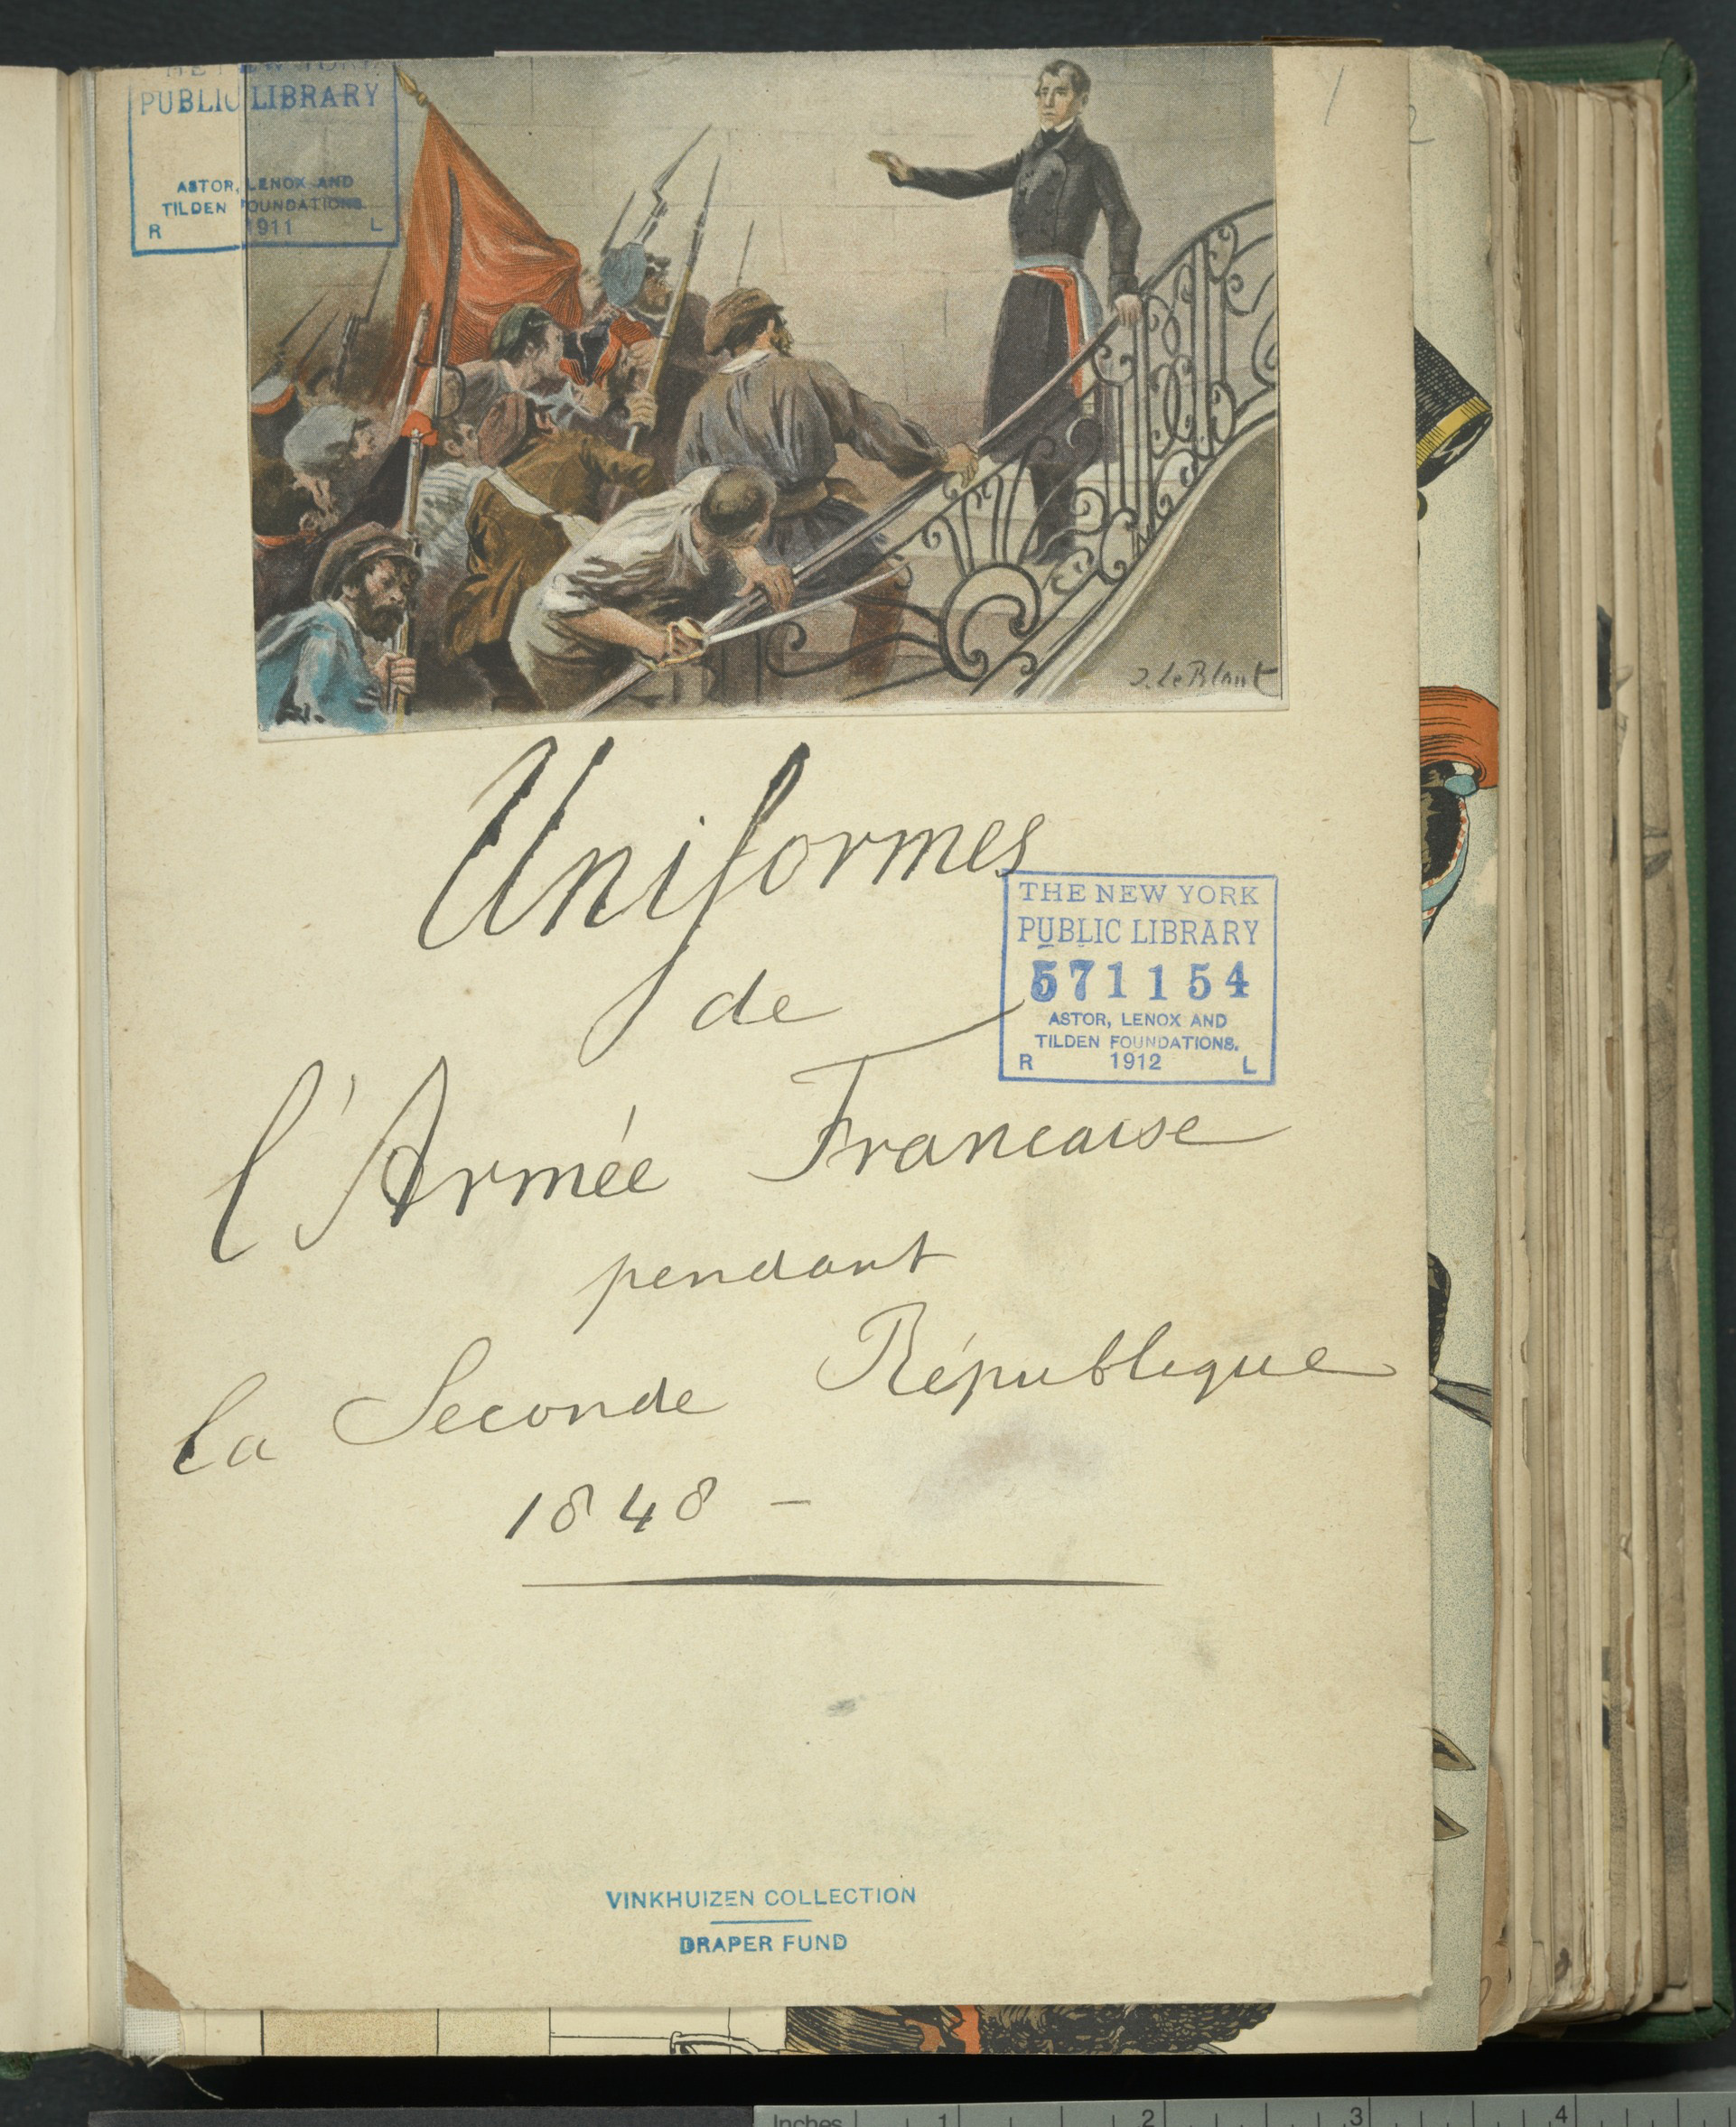 THE NEW YORK
PUBLIC LIBRARY
ASTOR, LENOX AND
TILDEN FOUNDATIONS
R 1911 L
1
2
J. Le Blant
Uniformes
THE NEW YORK
PUBLIC LIBRARY
571154
ASTOR, LENOX AND
TILDEN FOUNDATIONS.
R 1912 L
de
l'Armée Francaise
pendant
la Seconde République
1848 –
VINKHUIZEN COLLECTION
DRAPER FUND
Inches 1 2 3 4